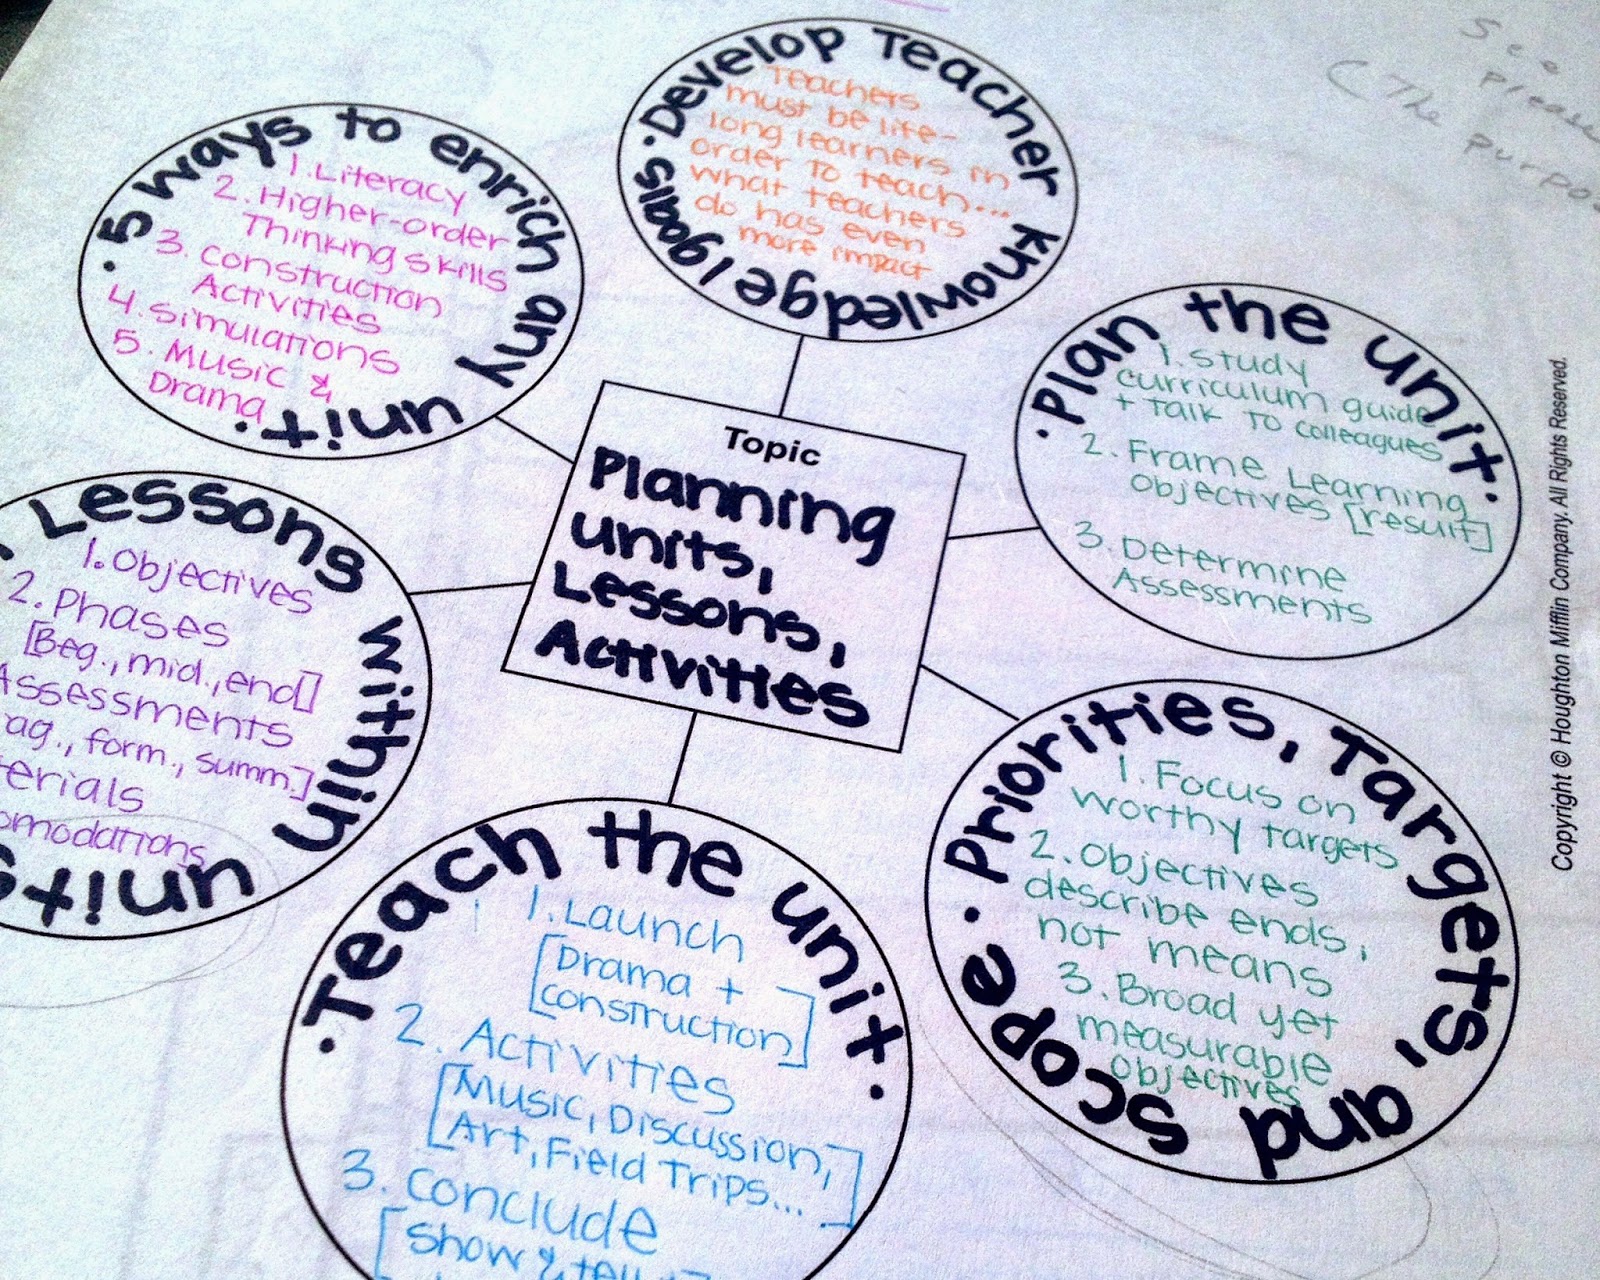 Topic
Planning
units,
Lessons,
Activities
Develop Teacher Knowledge/goals
Teachers
must be life-
long learners in
order to teach...
what teachers
do has even
more impact
Plan the unit
1. Study
curriculum guide
+ Talk to colleagues
2. Frame Learning
Objectives [result]
3. Determine
Assessments
Priorities, Targets, and Scope
1. Focus on
worthy targets
2. Objectives
describe ends,
not means
3. Broad yet
measurable
Objectives
Teach the unit
1. Launch
[Drama +
construction]
2. Activities
[Music, Discussion,
Art, Field Trips...]
3. Conclude
[Show & tell
Lessons within units
1. Objectives
2. Phases
[Beg., mid., end]
Assessments
form., summ.]
5 ways to enrich any unit
1. Literacy
2. Higher-order
Thinking skills
3. Construction
Activities
4. Simulations
5. Music &
Drama
See
Please
(The
purpo
Copyright © Houghton Mifflin Company. All Rights Reserved.